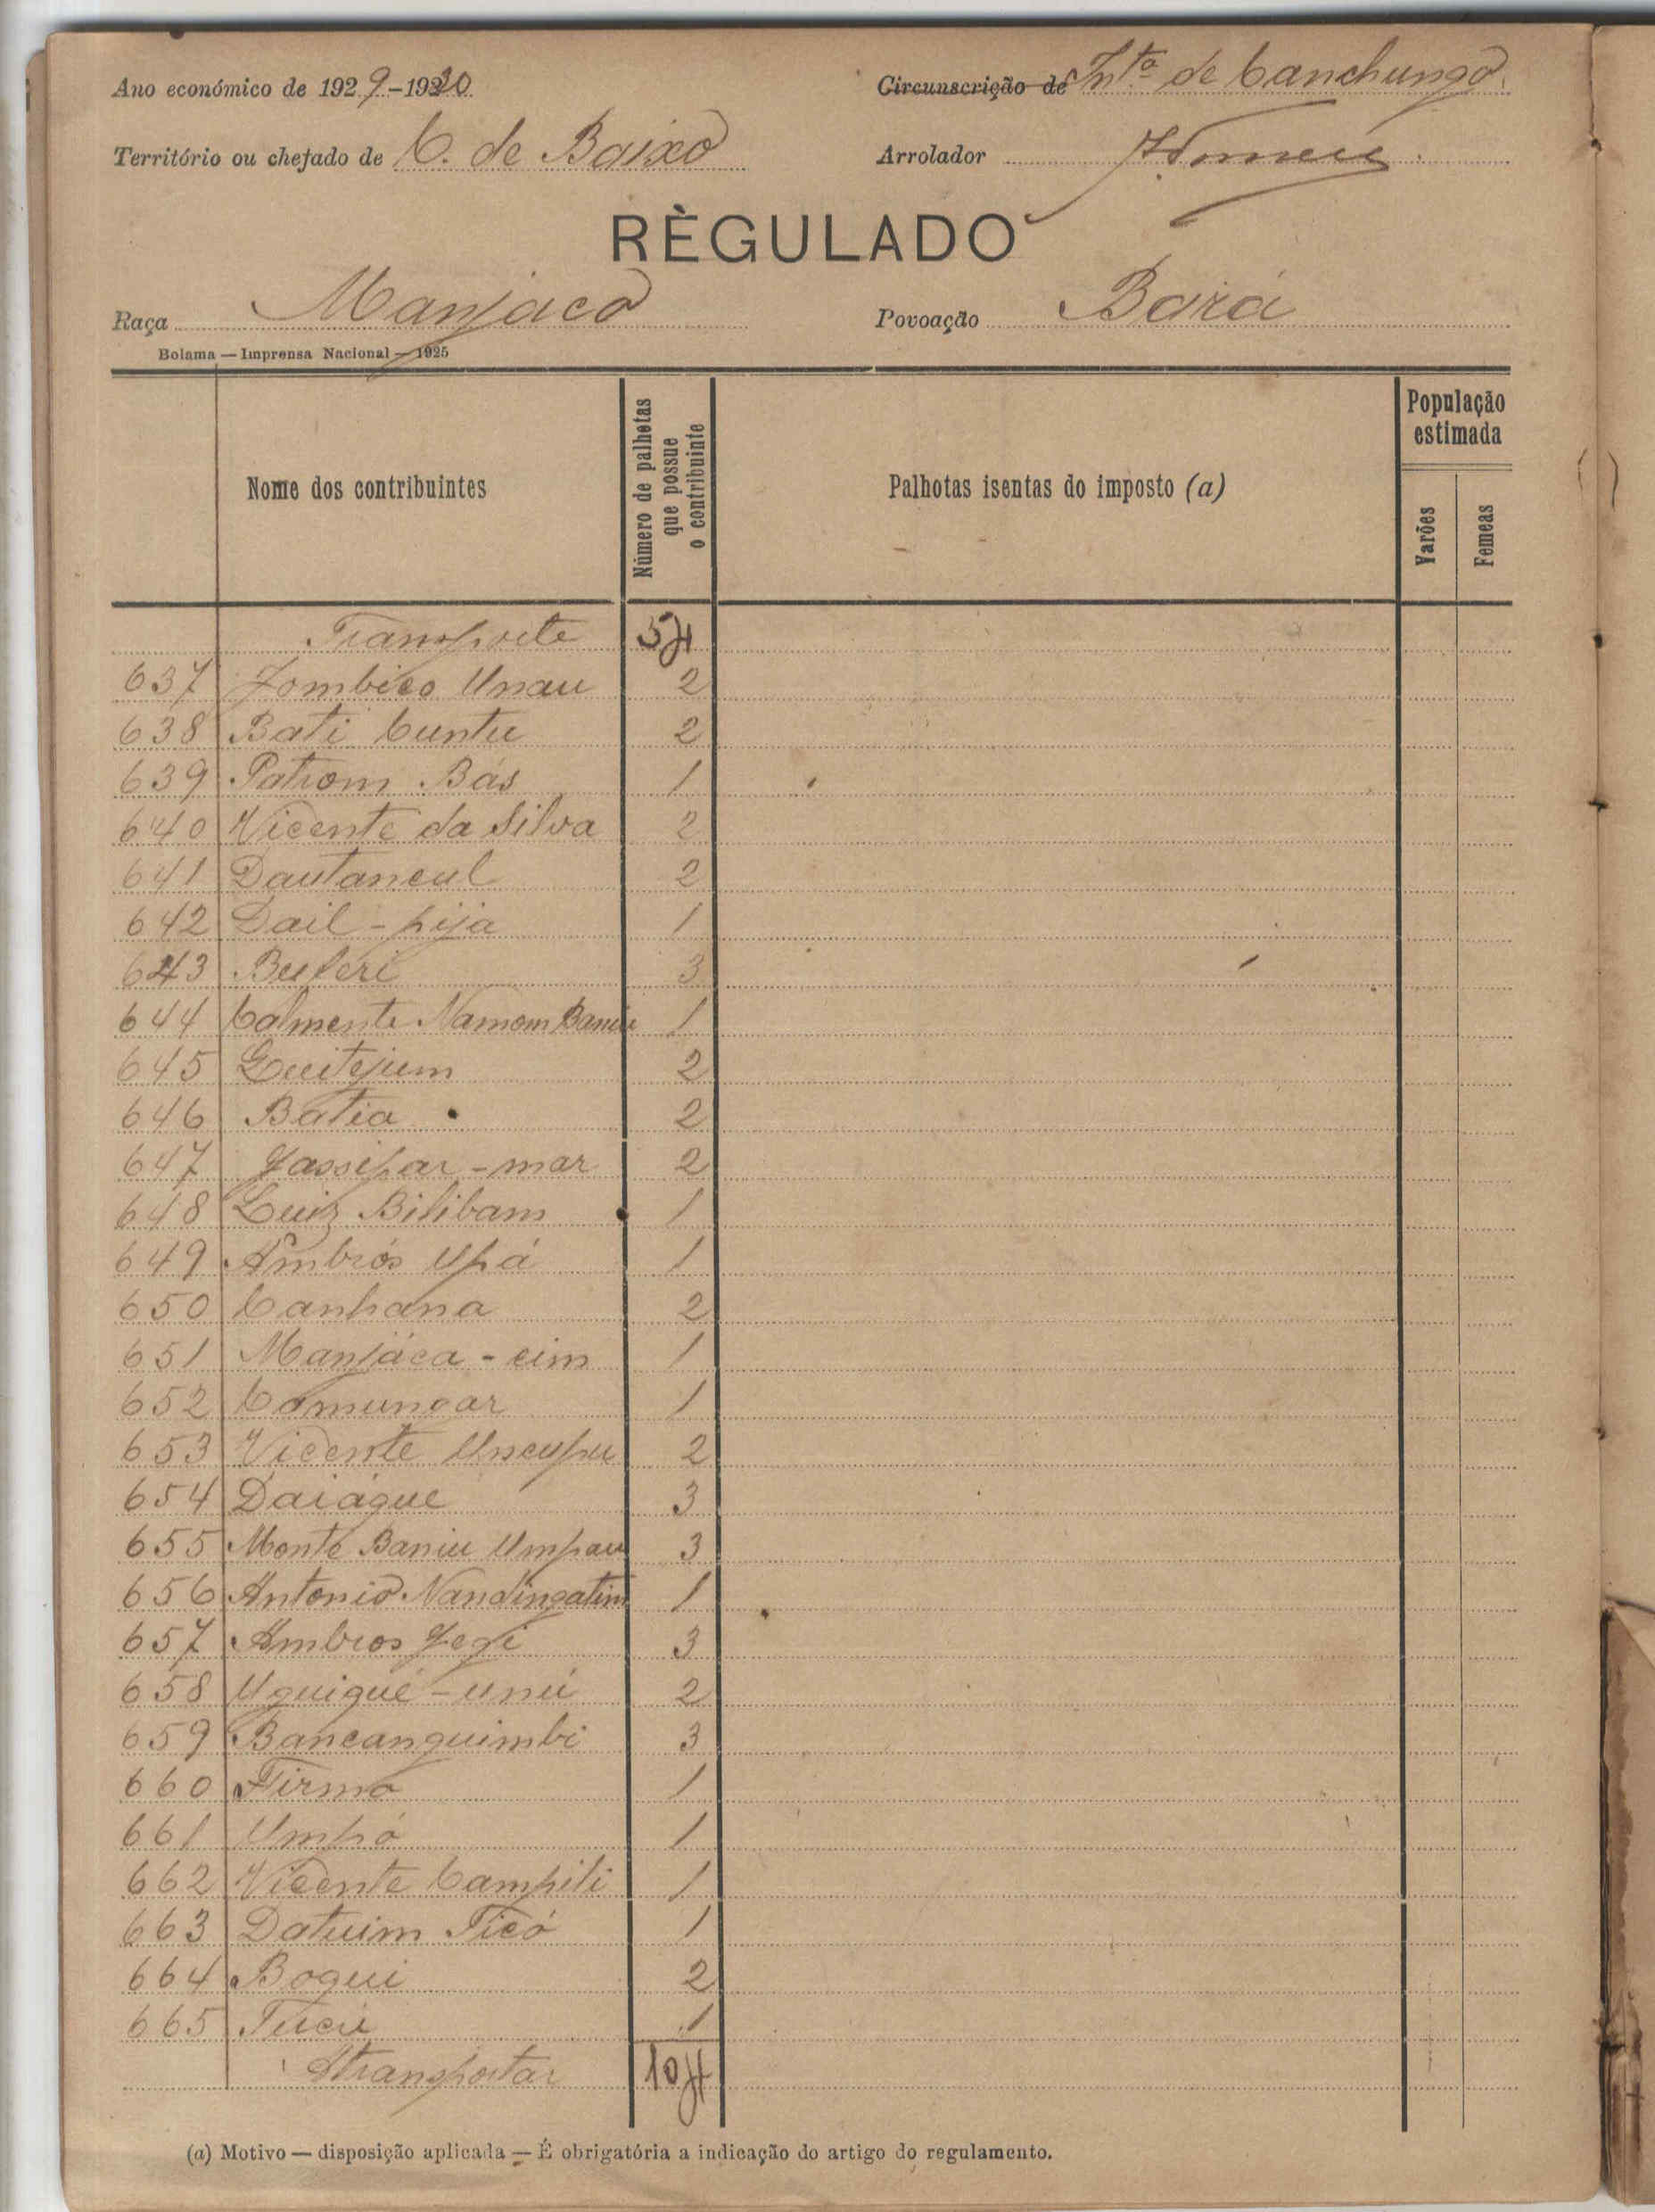 Ano económico de 1929-1930
Circunscrição de Int.ª de Canchungo
Território ou chefado de C. de Baixo
Arrolador
RÈGULADO
Raça Manjaco
Povoação Bará
Bolama — Imprensa Nacional — 1925
Nome dos contribuintes
Número de palhotas que possue o contribuinte
Palhotas isentas do imposto (a)
População estimada
Varões
Femeas
Transporte 57
637 Jombico Unau 2
638 Bati Cuntu 2
639 Patrom Bás 1
640 Vicente da Silva 2
641 Dautancul 2
642 Dail-pija 1
643 Buferi 3
644 Calmente Namom Baniu 1
645 Quitejum 2
646 Batia 2
647 Jassipar-mar 2
648 Luiz Bilibam 1
649 Ambrós Upá 1
650 Canhana 2
651 Manjáca-cim 1
652 Comungar 1
653 Vicente Uncupu 2
654 Daiágue 3
655 Monte Baniu Umpau 3
656 Antonio Nandingatim 1
657 Ambros Jegi 3
658 Uguigué-unú 2
659 Bancanguimbi 3
660 Firmo 1
661 Umpó 1
662 Vicente Campili 1
663 Datuim Ticó 1
664 Boqui 2
665 Tucú 1
Atransportar 107
(a) Motivo — disposição aplicada — É obrigatória a indicação do artigo do regulamento.